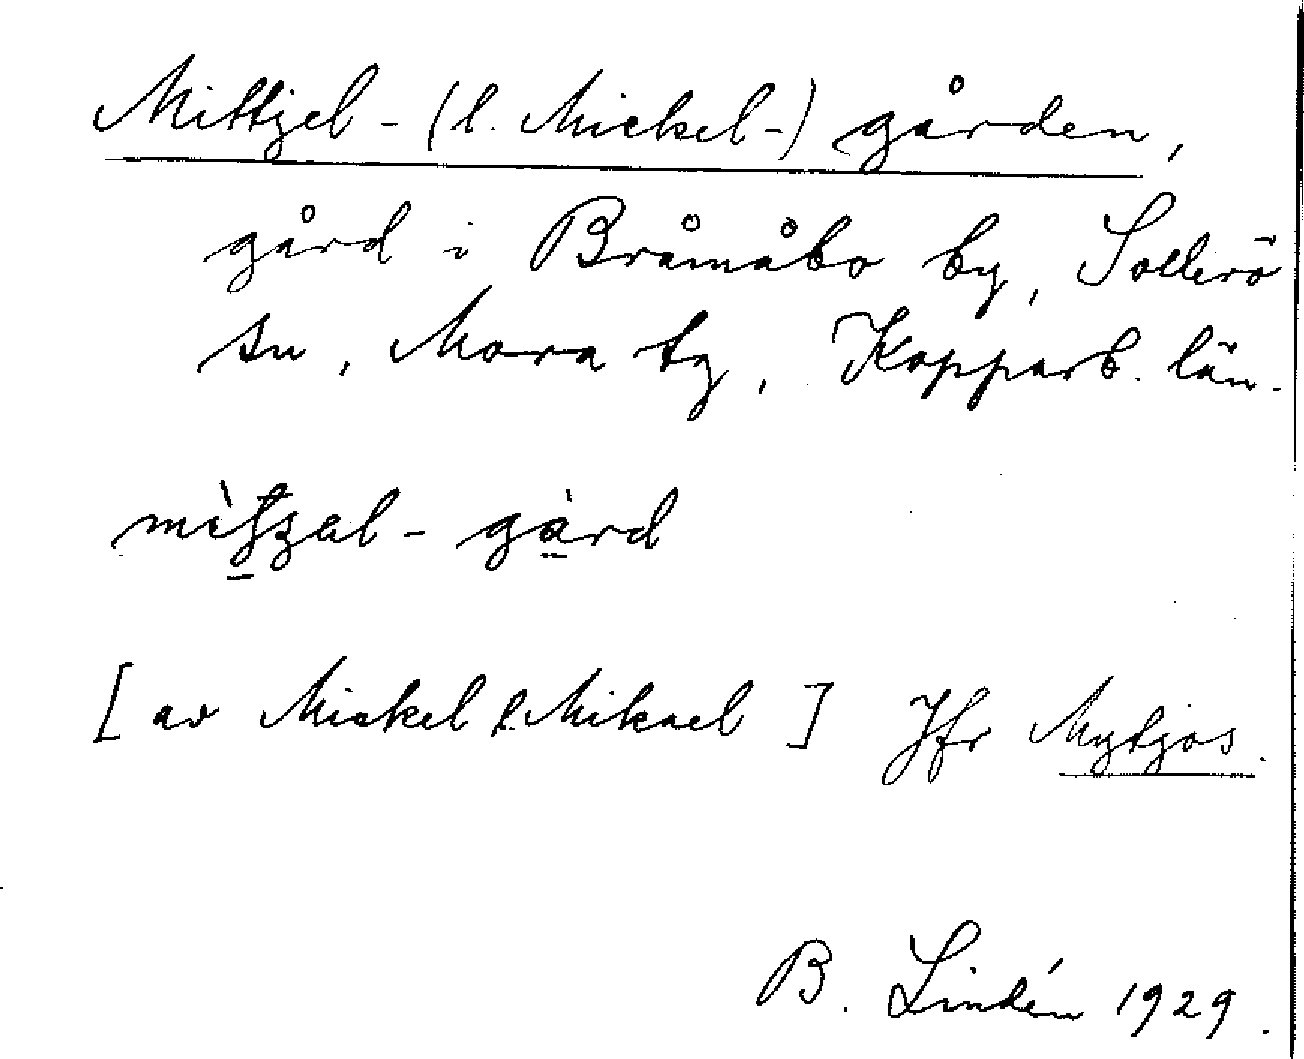 Mittjel- (l. Mickel-) gården,
gård i Bråmåbo by, Sollerö
sn, Mora tg, Kopparb. län.
- gård
[av Mickel l. Mikael] Jfr Mytjos.
B. Lindén 1929.